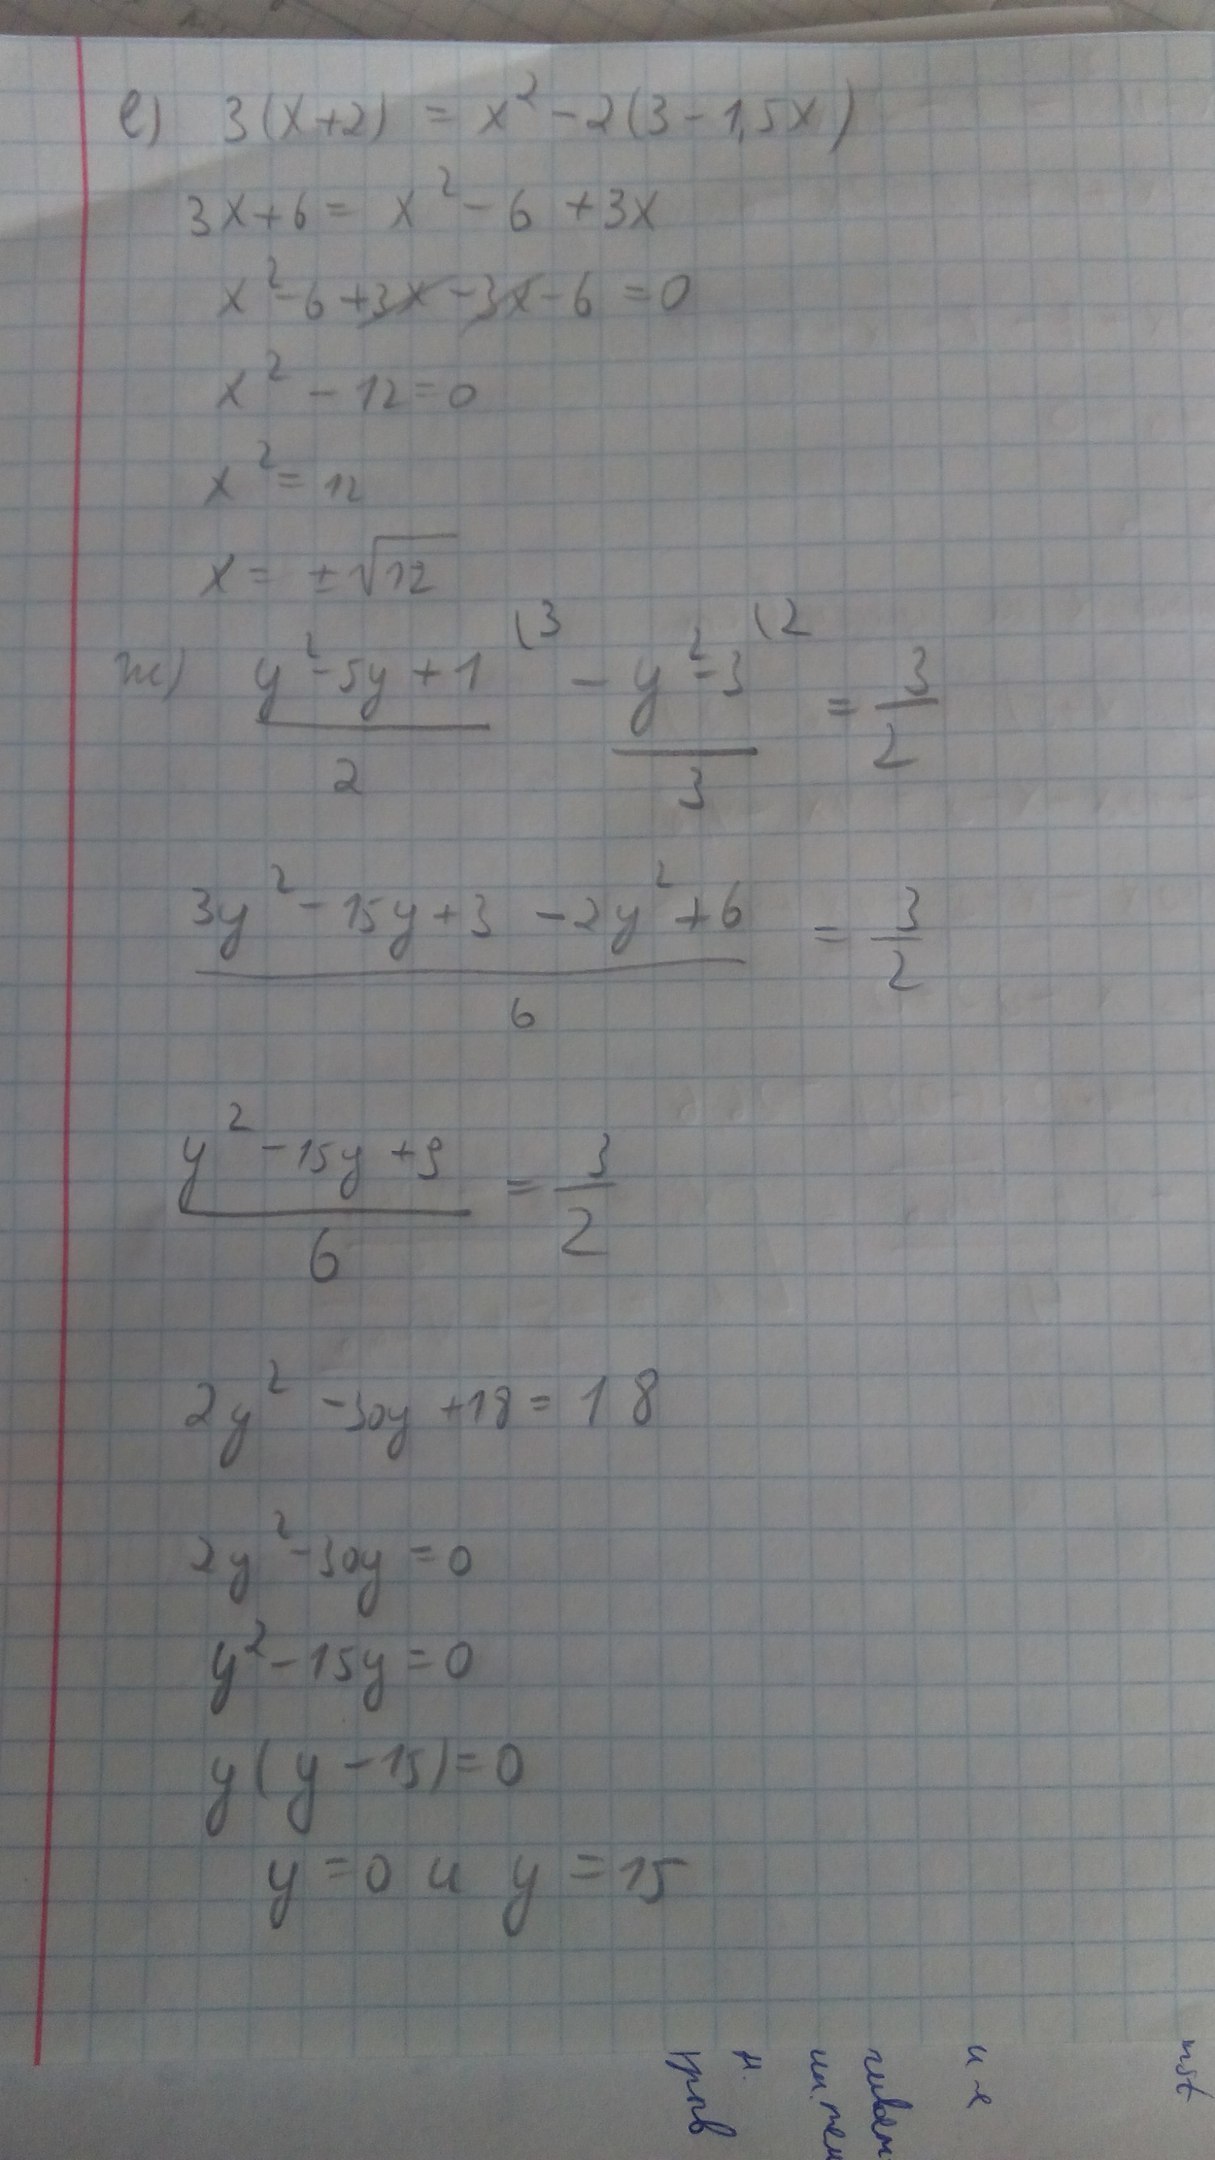 е) 3(x+2) = x² - 2(3 - 1,5x)
3x+6 = x² - 6 + 3x
x² - 6 + 3x - 3x - 6 = 0
x² - 12 = 0
x² = 12
x = ±√12
ж) (y² - 5y + 1)/2 (3 - (y² - 3)/3 (2 = 3/2
(3y² - 15y + 3 - 2y² + 6)/6 = 3/2
(y² - 15y + 9)/6 = 3/2
2y² - 30y + 18 = 18
2y² - 30y = 0
y² - 15y = 0
y(y - 15) = 0
y = 0 и y = 15